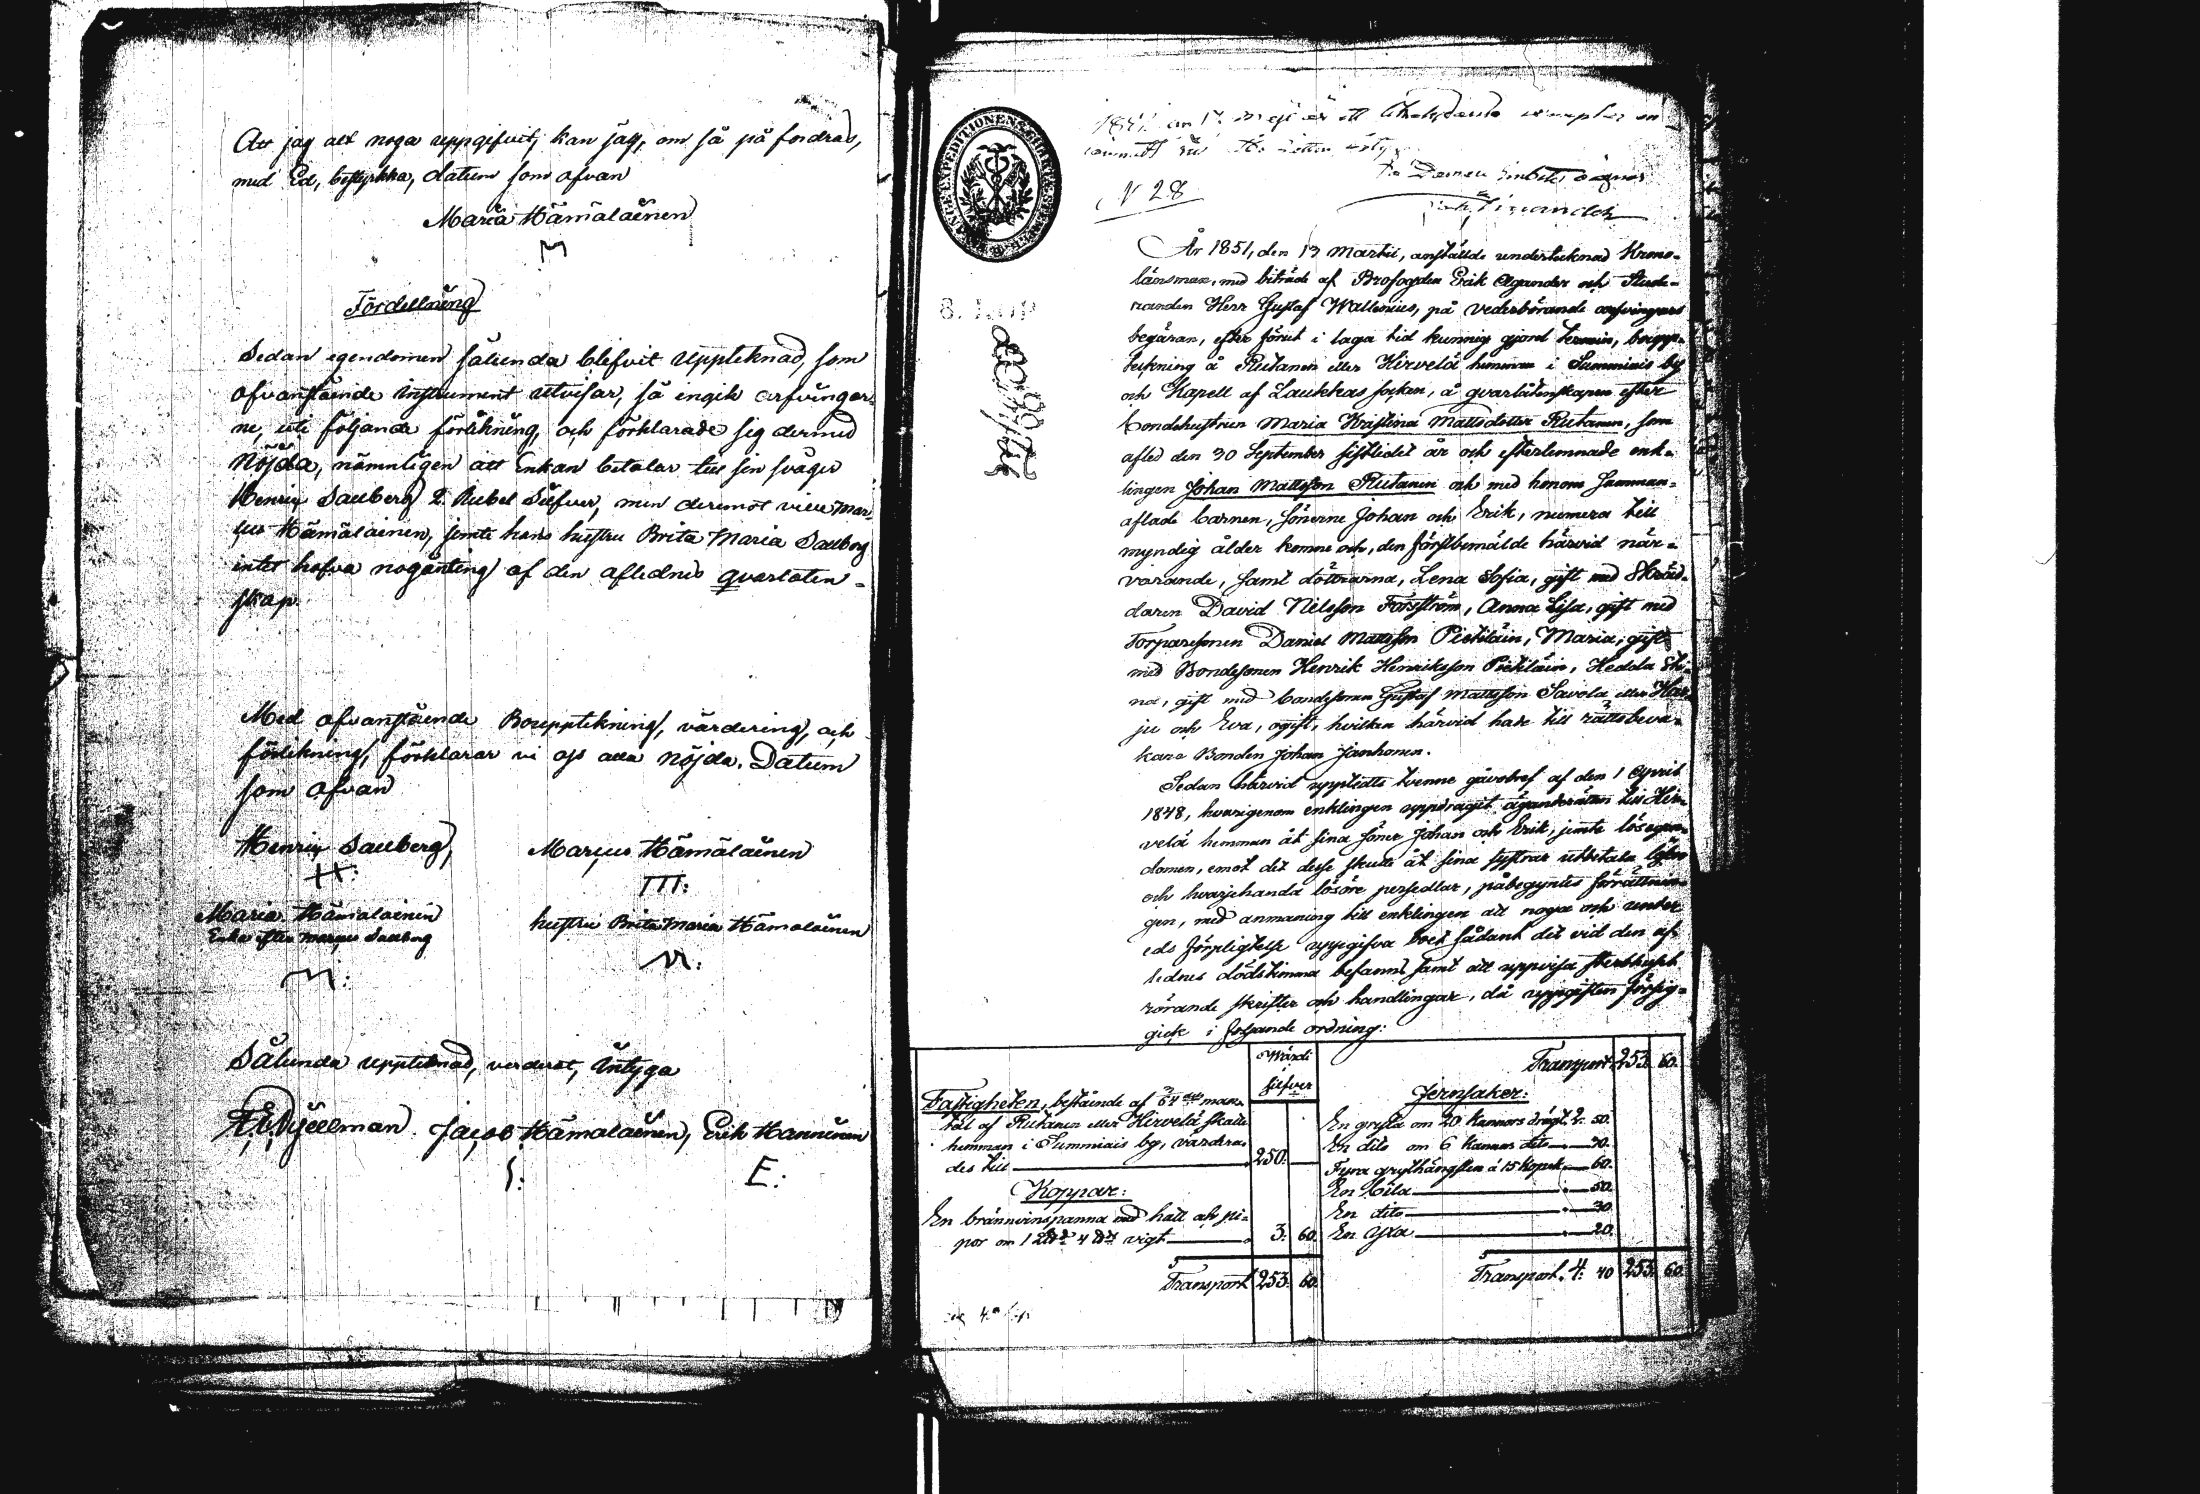 Att jag allt noga uppgifvit, kan jag, om så på fordras,
med Ed, bestyrkka, datum som ofvan
Maria Hämäläinen
M
Fördellning
Sedan egendomen sålunda blifvit uppteknad, som
ofvanstående instrument utvisar, så ingik arfvingar-
ne, uti följande förlikning, och förklarade sig dermed
Nöjda, nämnligen att Enkan betalar till sin svåger
Henrix Sauberg 2 Rubel Silfver, men deremot vill Mar-
cus Hämäläinen, jemte hans hustru Brita Maria Sauberg
intet hafva någonting af den aflednes qvarlåten-
skap.
Med ofvanstående Bouppteknings, värdering, och
förlikning, förklarar vi oss alla nöjda. Datum
som ofvan
Henrix Sauberg,
H:
Marcus Hämäläinen
III:
Maria Hämäläinen
Enka efter Marcus Sauberg
M:
hustru Brita Maria Hämäläinen
M:
Sålunda uppteknad, verderat, Intyga
Jacob Hämäläinen, Erik Hanninen
I: E:
N 28
År 1851, den 13 Martii, anställde undertecknad Krono-
länsman, med biträde af Brofogden Erik Agander och Stude-
randen Herr Gustaf Wallenius, på vederbörande arfvingars
begäran, efter förut i laga tid kunnig gjord termin, boupp-
tekning å Rutanen eller Hirvelä hemman i Summiais by
och Kapell af Laukkas socken, å qvarlåtenskapen efter
bondehustrun Maria Kristina Mattsdotter Rutanen, som
afled den 30 September sistlidet år och efterlemnade enk-
lingen Johan Mattsson Rutanen och med honom samman-
aflade barnen, sönerne Johan och Erik, numera till
myndig ålder komne och, den förstbemälde härvid när-
varande, samt döttrarna, Lena Sofia, gift med Skräd-
daren David Nilsson Forsström, Anna Lisa, gift med
Torparesonen Daniel Mattsson Piekiläin, Maria, gift
med Bondesonen Henrik Henriksson Piekiläin, Hedda Sti-
na, gift med bondesonen Gustaf Mattsson Savola eller Har-
ju och Eva, ogift, hvilken härvid hade till rättsbeva-
kare Bonden Johan Janhonen.
Sedan härvid uppteddts tvenne gåvobref af den 1 April
1848, hvarigenom enklingen uppdragit äganderätten till Hir-
velä hemman åt sina söner Johan och Erik, jemte lösegen-
domen, emot det desse skulle åt sina systrar utbetala löfen
och hvarjehanda lösöre persedlar, påbegyntes förrättnin-
gen, med anmaning till enklingen att noga och under
eds förpligtelse uppgifva boet sådant det vid den af-
lednes dödstimma befanns samt att uppvisa sterbhuset
rörande skrifter och handlingar, då uppgiften försig-
gick i följande ordning:
Wärdi
silfver
Fastigheten, bestående af man-
tal af Rutanen eller Hirvelä skatte
hemman i Summiais by, värdera-
des till 250.
Koppar:
En brännvinspanna med hatt och pi-
por om 1 4 vigt 3. 60.
Transport 253. 60.
Transport. 253. 60.
Jernsaker:
En gryta om 20 kannors drägt. 2. 50.
En dito om 6 kannors dito 70.
Fyra grythängslen á 15 kopek 60.
En bila 50.
En dito 30
En Yxa 20.
Transport. 4: 253. 60.